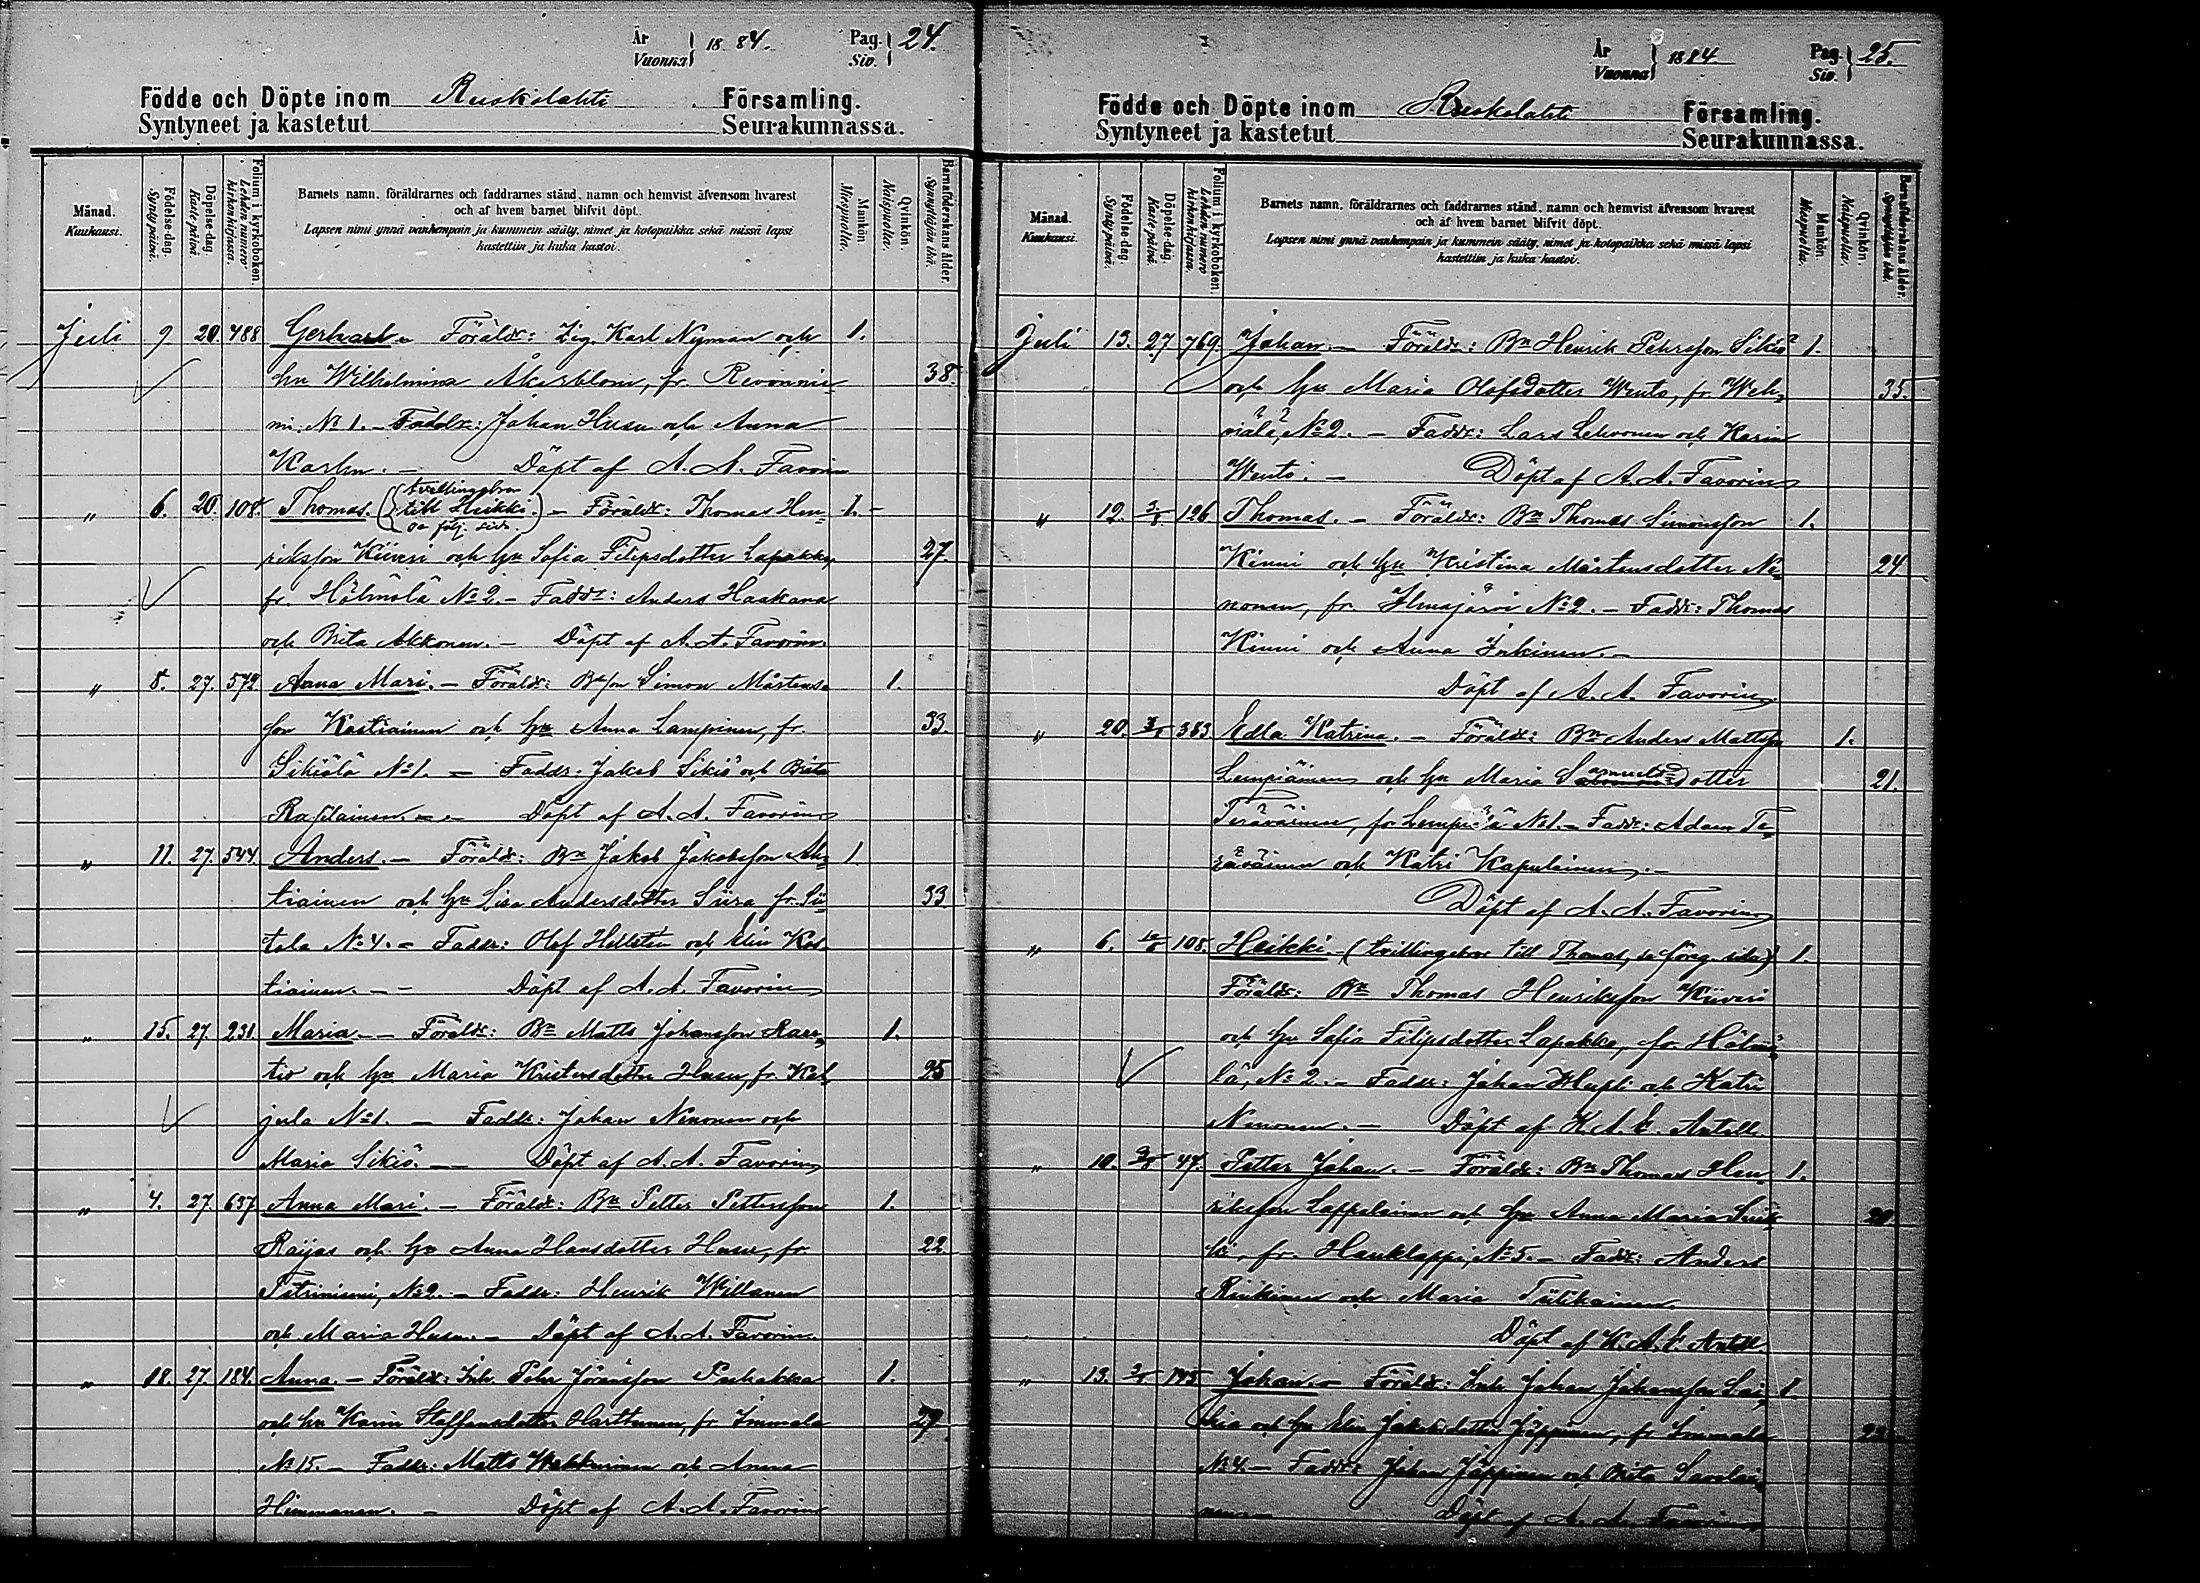 År
Vuonna 1884. Pag. Siv. 24.
Födde och Döpte inom Ruokolahti Församling.
Syntyneet ja kastetut Seurakunnassa.
Månad. Kuukausi.
Födelse-dag. Synty päivä.
Döpelse-dag. Kaste päivä.
Folium i kyrkoboken. Lehden numero kirkonkirjassa.
Barnets namn, föräldrarnes och faddrarnes stånd, namn och hemvist äfvensom hvarest
och af hvem barnet blifvit döpt.
Lapsen nimi ynnä vanhempain ja kummein sääty, nimet ja kotopaikka sekä missä lapsi
kastettiin ja kuka kastoi.
Mankön. Miespuolia.
Qvinkön. Naispuolia.
Barnaföderskans ålder. Synnyttäjän ikä.
Juli 9 20. 488 Gerhard. Föräldr: Zig. Karl Nyman och 1.
hu Wilhelmina Åkerblom, fr. Revonnie- 38.
mi, No 1. - Faddr: Johan Husu och Anna
Karhu. - Döpt af A. A. Favorin
" 6. 20. 108. Thomas. (tvillingsbror till Heikki. se följ. sida.) - Föräldr: Thomas Hen- 1.
riksson Kiiveri och hu Sofia Filipsdotter Lapakko, 27.
fr. Hölmölä No 2. - Faddr: Anders Haakana
och Brita Akkonen. - Döpt af A. A. Favorin.
" 8. 27. 572 Anna Mari. - Föräldr: Simon Mårtens- 1.
son Kostiainen och hu Anna Lampinen, fr. 33.
Sikiölä No 1. - Faddr: Jakob Sikiö och Brita
Rasilainen. - Döpt af A. A. Favorin
" 11. 27. 544. Anders. - Föräldr: Bn Jakob Jakobsson 1
tiainen och hu Lisa Andersdotter Siira fr. Sii- 33
tola No 4. - Faddr: Olof Hellsten och Elin Kos-
tiainen. - Döpt af A. A. Favorin
" 15. 27. 231. Maria. - Föräldr: Bn Matts Johansson 1.
tio och hu Maria Kristersdotter Husu, fr. Kal- 25
jula No 1. - Faddr: Johan Ninonen och
Maria Sikiö. - Döpt af A. A. Favorin
" 4. 27. 637 Anna Mari. - Föräldr: Bn Petter Pettersson 1.
Raijas och hu Anna Hansdotter Husu, fr. 22
No 2. - Faddr: Henrik Willanen
och Maria Husu. - Döpt af A. A. Favorin.
" 18. 27. 184. Anna. - Föräldr: Inh. Pehr Jöransson Pahakka 1.
och hu Karin Staffansdotter Harttunen, fr Immala 29
No 15. - Faddr: Matts Wakkurinen och Anna
Himmanen. - Döpt af A. A. Favorin
År
Vuonna 1884 Pag. Siv. 25.
Födde och Döpte inom Ruokolahti Församling.
Syntyneet ja kastetut Seurakunnassa.
Månad. Kuukausi.
Födelse-dag. Synty päivä.
Döpelse-dag. Kaste päivä.
Folium i kyrkoboken. Lehden numero kirkonkirjassa.
Barnets namn, föräldrarnes och faddrarnes stånd, namn och hemvist äfvensom hvarest
och af hvem barnet blifvit döpt.
Lapsen nimi ynnä vanhempain ja kummein sääty, nimet ja kotopaikka sekä missä lapsi
kastettiin ja kuka kastoi.
Mankön. Miespuolia.
Qvinkön. Naispuolia.
Barnaföderskans ålder. Synnyttäjän ikä.
Juli 13. 27. 769. Johan. - Föräldr: Bn Henrik Pehrsson Sikiö 1.
och hu Maria Olofsdotter Wento, fr. Weh- 35.
viälä, No 2. - Faddr: Lars Lehvonen och Karin
Wento. - Döpt af A. A. Favorin
" 12. 3/8 126 Thomas. - Föräldr: Bn Thomas Simonsson 1.
Kinni och hu Kristina Mårtensdotter Ni- 24
nonen, fr. Ilmajärvi No 2. - Faddr: Thomas
Kinni och Anna Inkinen. -
Döpt af A. A. Favorin
" 20. 3/8 383 Edla Katrina. - Föräldr: Bn Anders Mattsson 1.
Lempiäinen och hu Maria Samuelsdotter 21.
Teräväinen, fr Lempiälä No 1. - Faddr: Adam Te-
räväinen och Katri Kapulainen. -
Döpt af A. A. Favorin
" 6. 10/8 108. Heikki. - (tvillingsbror till Thomas, se föreg. sida) 1.
Föräldr: Bn Thomas Henriksson Kiiveri
och hu Sofia Filipsdotter Lapakko, fr. Hölmö-
lä, No 2. - Faddr: Johan Hupli och Katri
Ninonen. - Döpt af K. A. E. Antell.
" 10. 3/8 47. Petter Johan. - Föräldr: Bn Thomas Hen- 1.
riksson Lappalainen och hu Anna Maria Suik- 20
ki, fr. Hauklappi, No 5. - Faddr: Anders
Riikinen och Maria Tiilikainen.
Döpt af K. A. E. Antell.
" 13. 3/8 195 Johan. - Föräldr: Inh Johan Johansson Lai- 1.
kia och hu Elin Jakobsdotter Jäppinen, fr Immala 22
No 4. - Faddr: Johan Jäppinen och Brita Savolai-
nen. - Döpt af A. A. Favorin